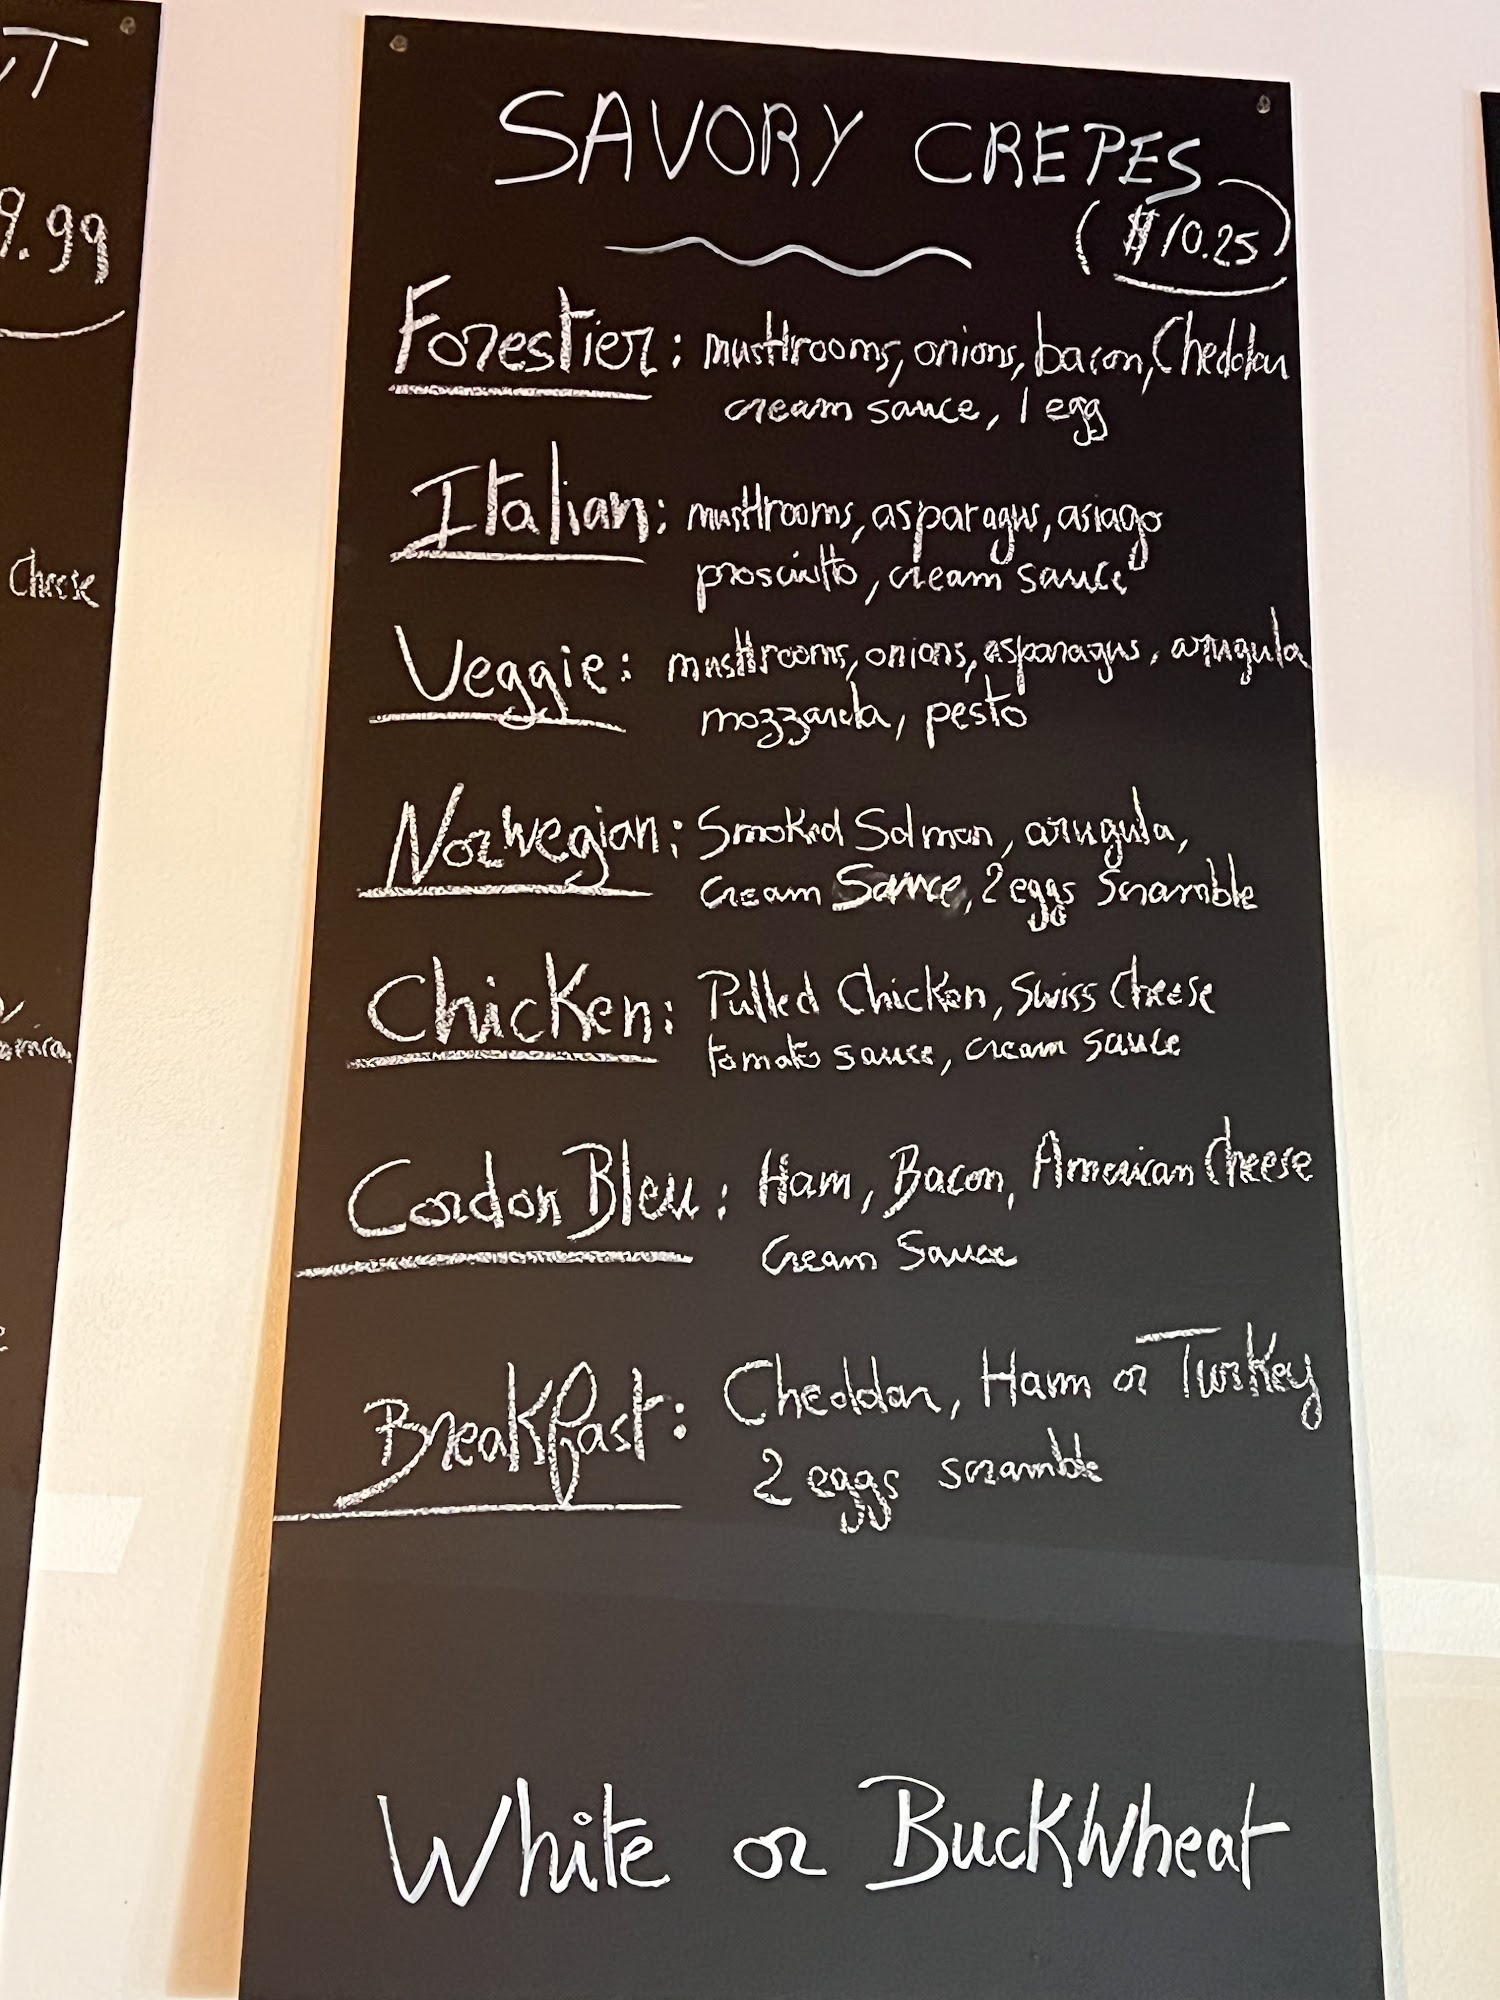 T
9.99
Cheese
SAVORY CREPES
($10.25)
Forestier: mushrooms, onions, bacon, Cheddar
cream sauce, 1 egg
Italian: mushrooms, asparagus, asiago
prosciutto, cream sauce
Veggie: mushrooms, onions, asparagus, arugula
mozzarela, pesto
Norwegian: Smoked Salmon, arugula,
Cream Sauce, 2 eggs Scramble
Chicken: Pulled Chicken, Swiss Cheese
tomato sauce, cream sauce
Cordon Bleu: Ham, Bacon, American Cheese
Cream Sauce
Breakfast: Cheddar, Ham or Turkey
2 eggs scramble
White or Buckwheat